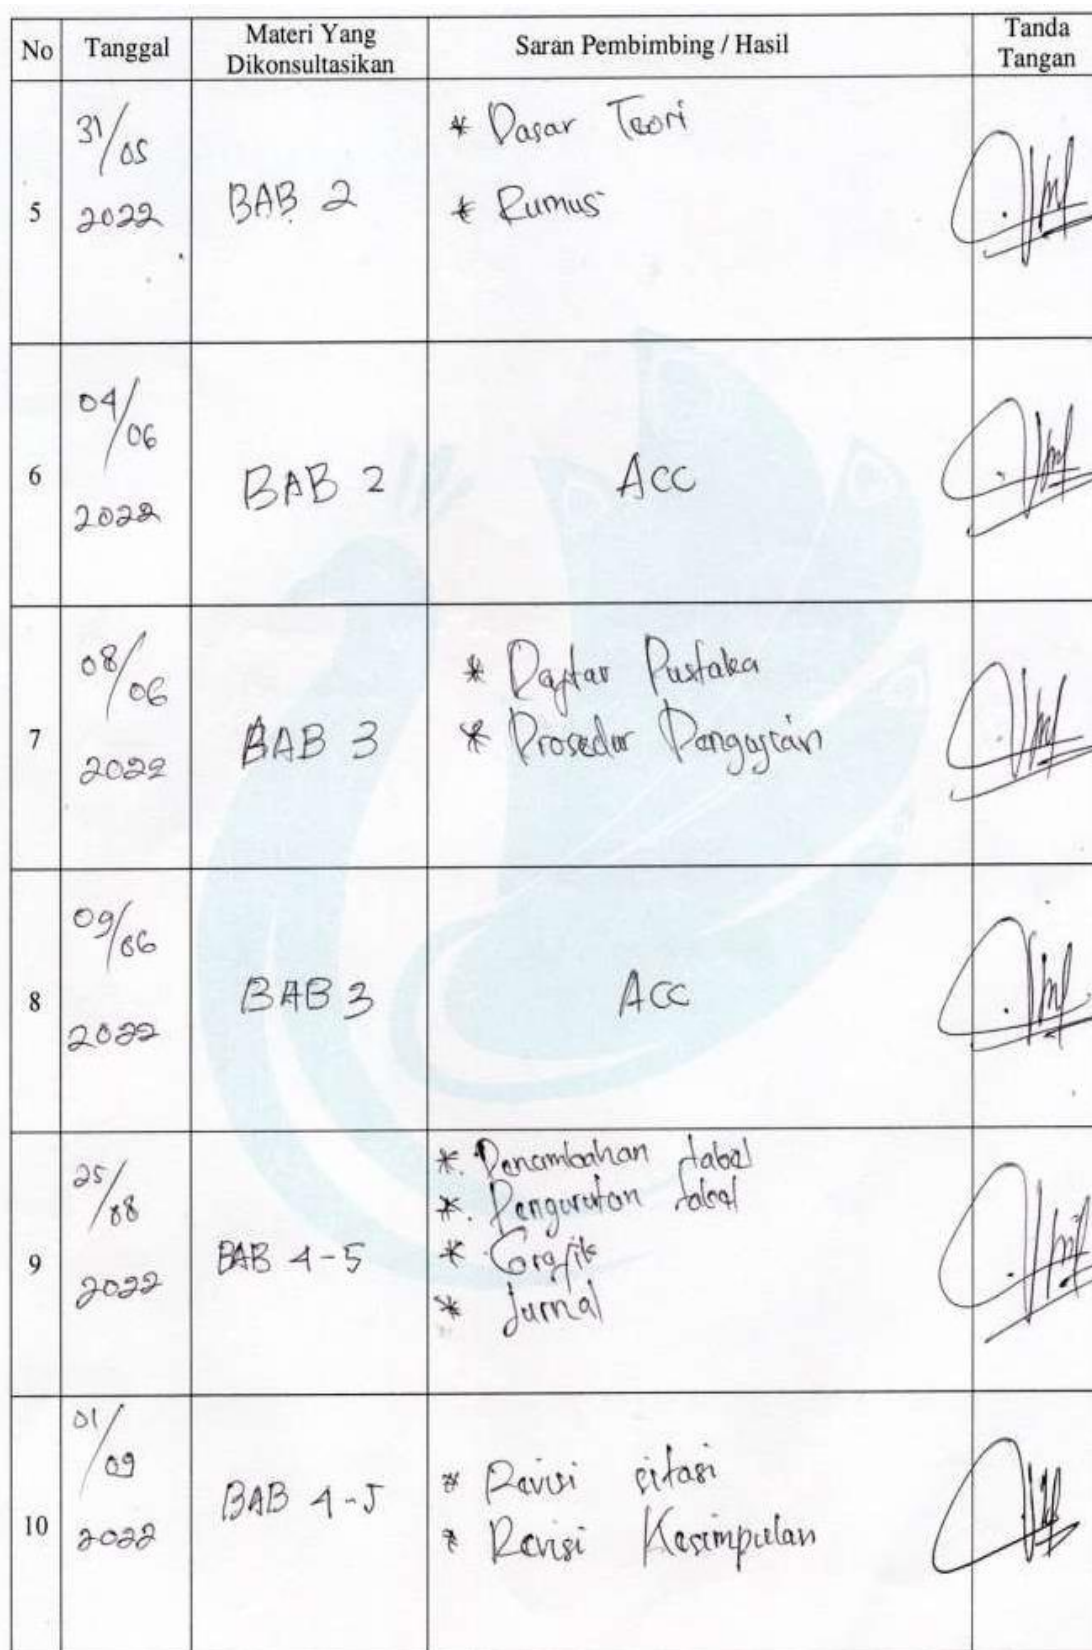 No Tanggal Materi Yang Dikonsultasikan Saran Pembimbing / Hasil Tanda Tangan
5 31/05 2022 BAB 2 * Dasar Teori
* Rumus
6 04/06 2022 BAB 2 Acc
7 08/06 2022 BAB 3 * Daftar Pustaka
* Prosedur Pengujian
8 09/06 2022 BAB 3 Acc
9 25/08 2022 BAB 4-5 *. Penambahan tabel
*. Pengurutan tabel
* Grafik
* Jurnal
10 01/09 2022 BAB 4-5 * Revisi sitasi
* Revisi Kesimpulan